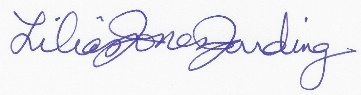 Lilias Jones Jarding